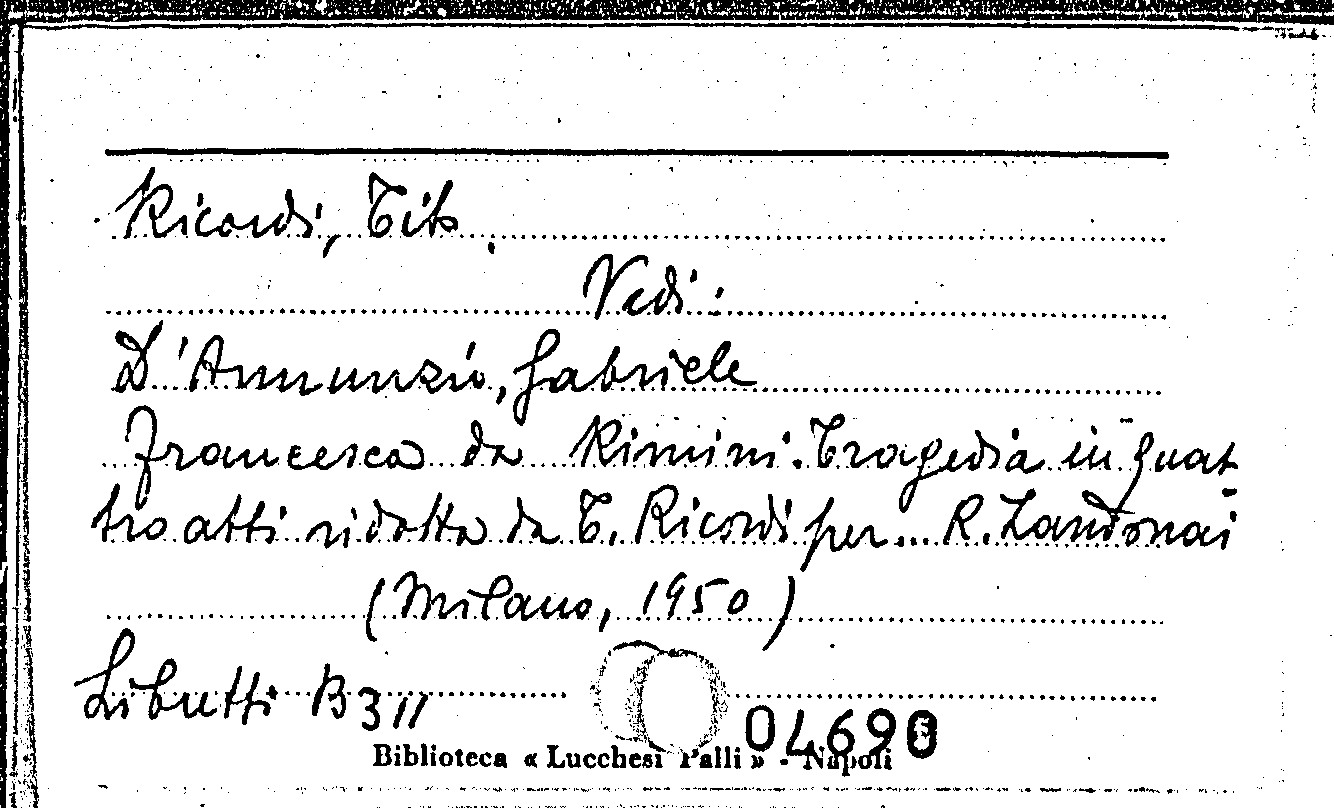 Ricordi, Tito.
Vedi:
D'Annunzio, Gabriele
Francesca da Rimini. Tragedia in quat-
tro atti ridotta da T. Ricordi per... R. Zandonai
(Milano, 1950)
Libretti B 311
04690
Biblioteca « Lucchesi Palli » - Napoli